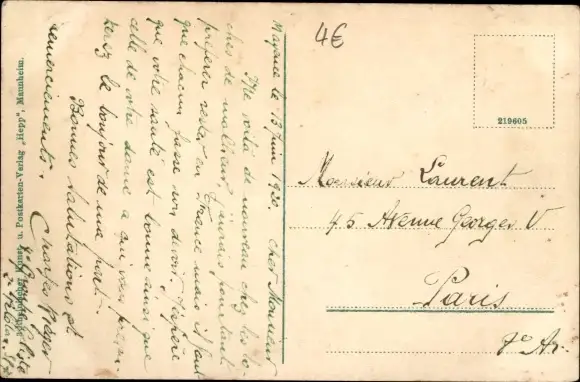 Mayence le 13 Juin 1930. cher Monsieur
Me voilà de nouveau chez les bo-
ches de malheur j'aurais pourtant
préféré rester en France mais il faut
que chacun fasse son devoir. J'espère
que votre santé est bonne ainsi que
celle de votre dame à qui vous
le bonjour de ma part.
Bonnes salutations et
remerciements.
Charles
Kunst u. Postkarten-Verlag „Hepp", Mannheim.
4€
219605
Monsieur Laurent
45 Avenue Georges V
Paris
7e Ar.